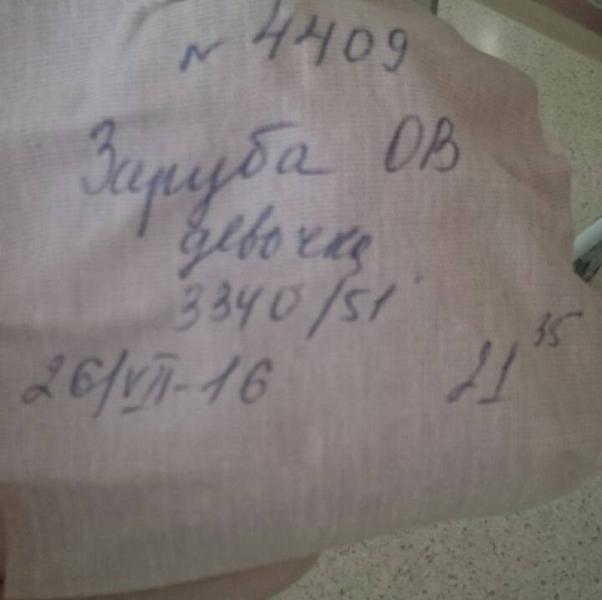 № 4409
Заруба ОВ
девочка
3340/51
26/VII-16 21 35